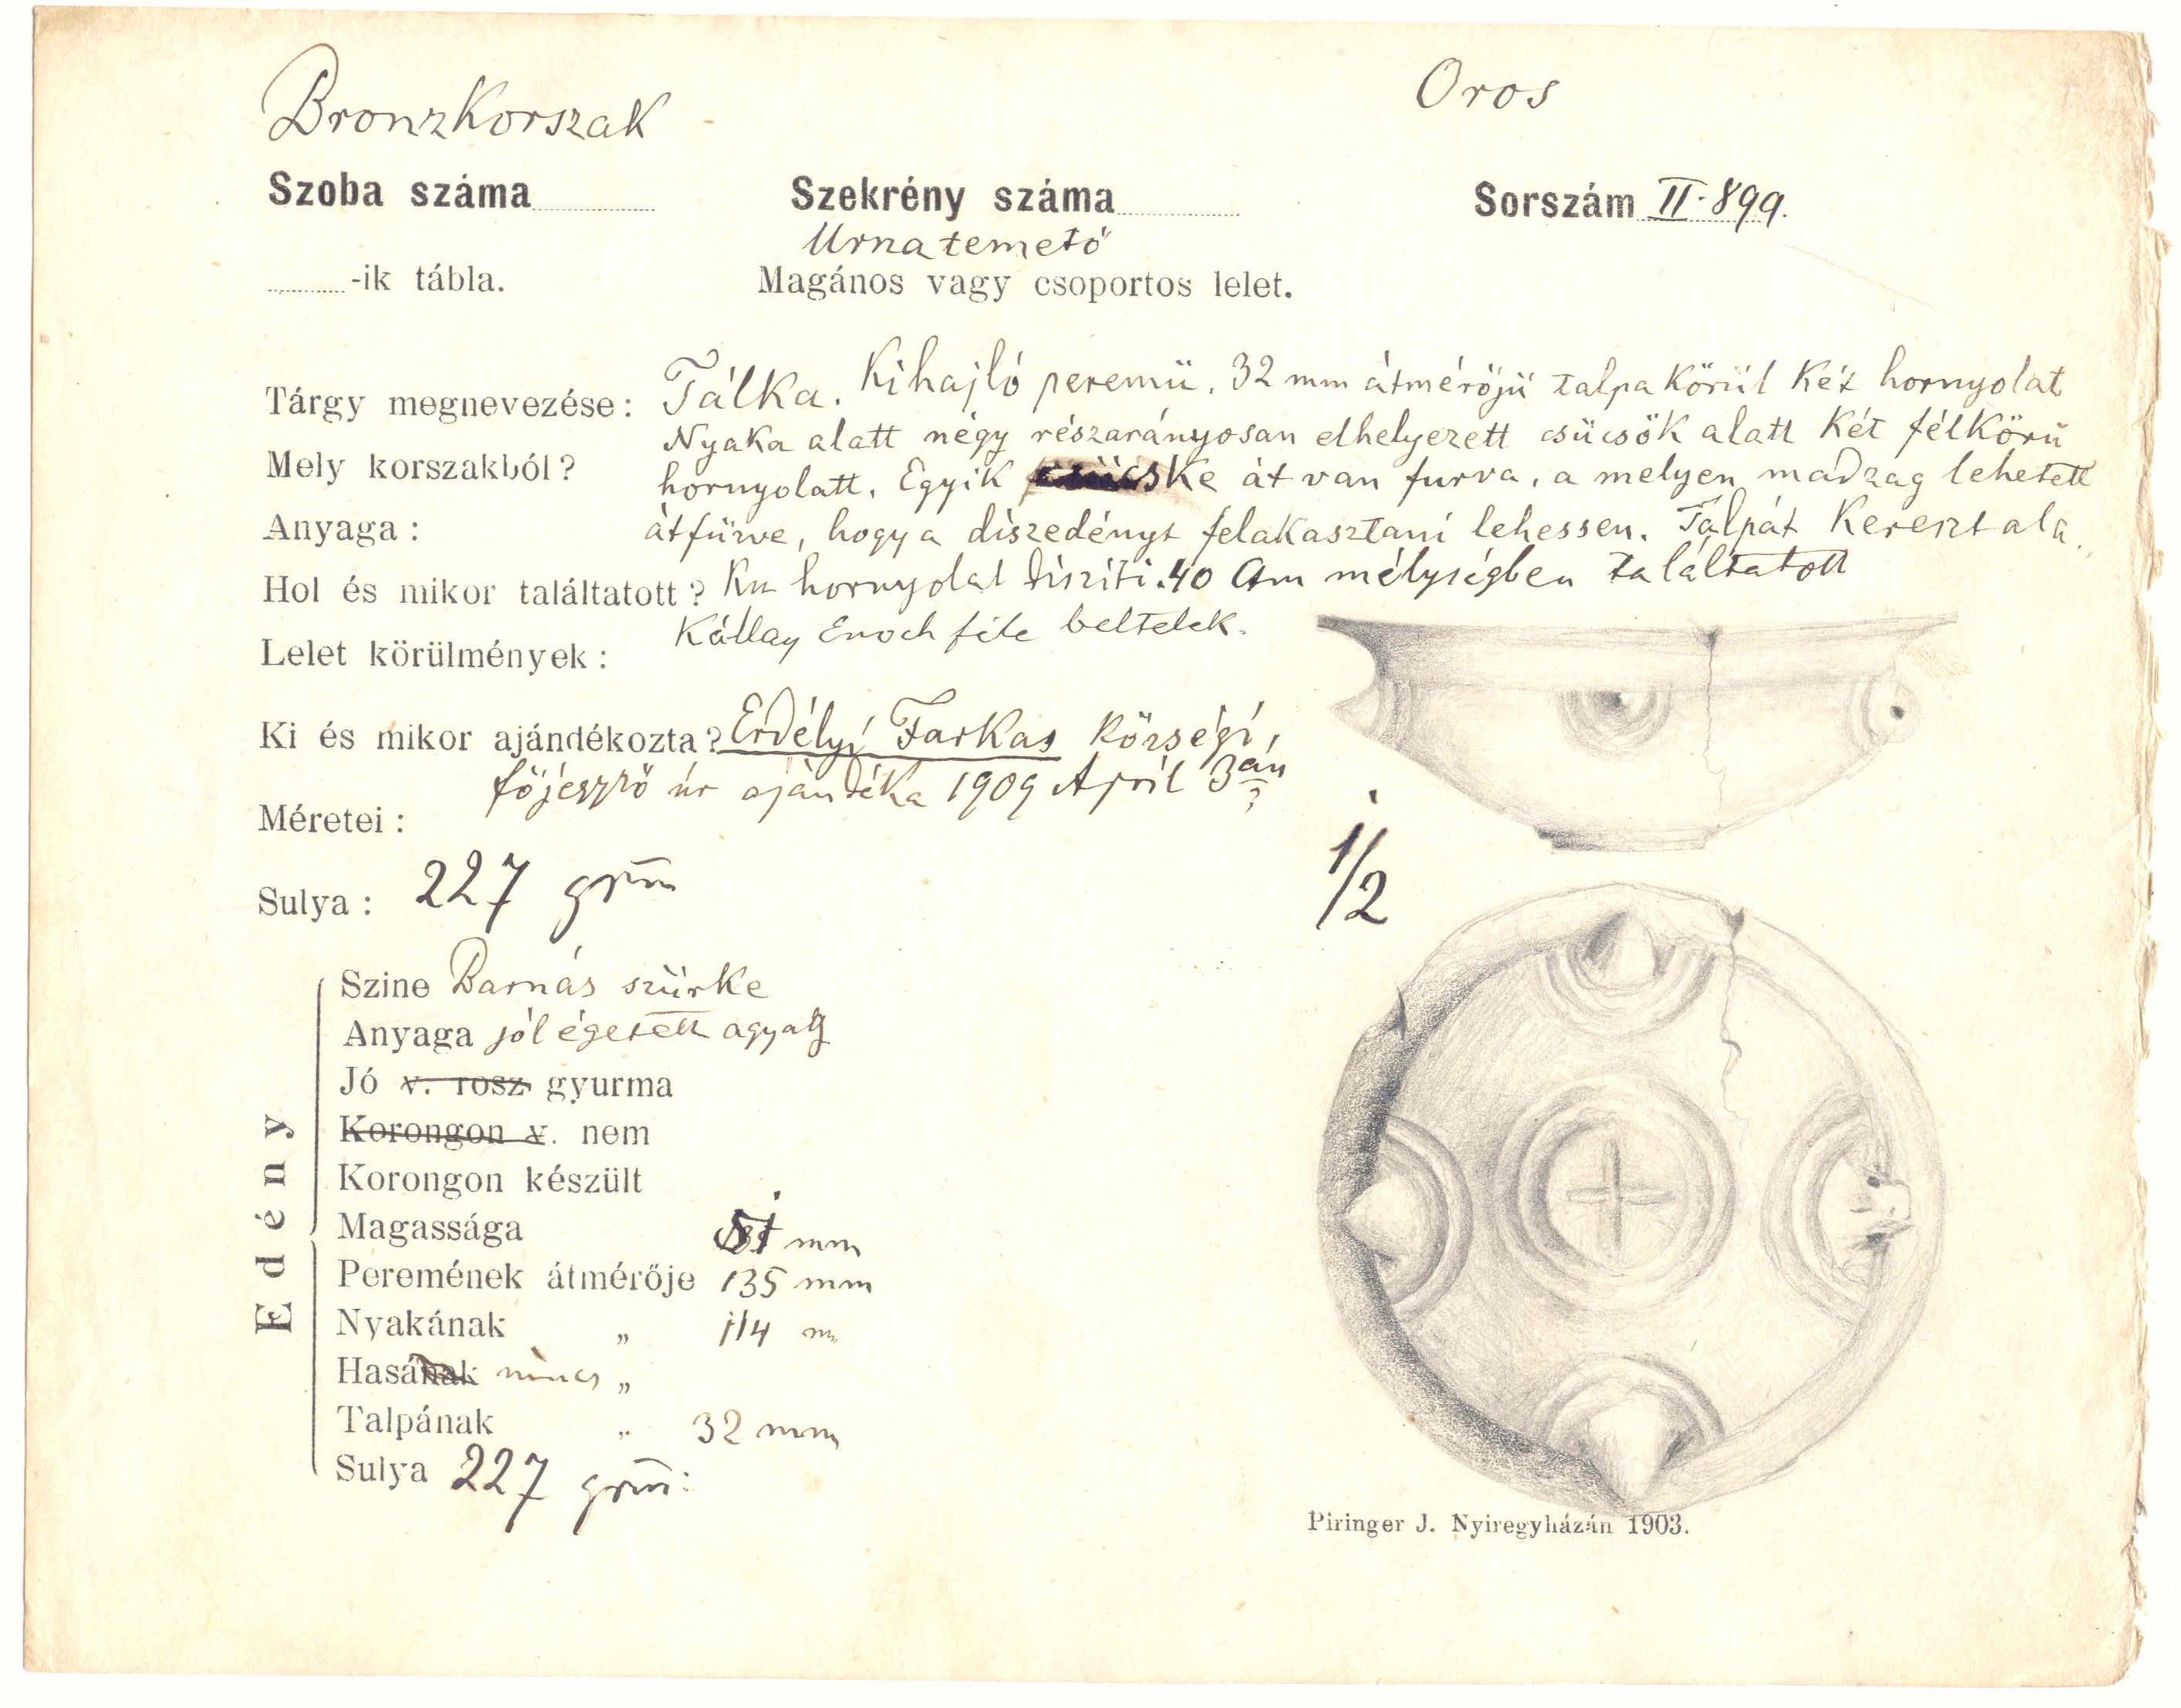 Bronzkorszak
Oros
Szoba száma
Szekrény száma
Sorszám II. 899.
Urnatemető
-ik tábla.
Magános vagy csoportos lelet.
Tárgy megnevezése: Tálka. Kihajló peremü. 32 mm átmérőjü talpa körül két hornyolat
Nyaka alatt négy részarányosan elhelyezett csücsök alatt két félkörü
Mely korszakból?
hornyolatt. Egyik csücske át van furva, a melyen madzag lehetett
Anyaga:
átfüzve, hogy a diszedényt felakasztani lehessen. Talpát kereszt ala
Hol és mikor találtatott? Ku hornyolat disziti. 40 Cm mélységben találtatott
Kállay Enoch féle beltelek.
Lelet körülmények:
Ki és mikor ajándékozta? Erdélyi Farkas községi,
főjegyző úr ajándéka 1909 April 3án
Méretei:
1/2
Sulya: 227 grm
Edény
Szine Barnás szürke
Anyaga jól égetett agyag
Jó v. rosz gyurma
Korongon v. nem
Korongon készült
Magassága 51 mm
Peremének átmérője 135 mm
Nyakának „ 114 m
Hasának nincs „
Talpának „ 32 mm
Sulya 227 grm:
Piringer J. Nyiregyházán 1903.